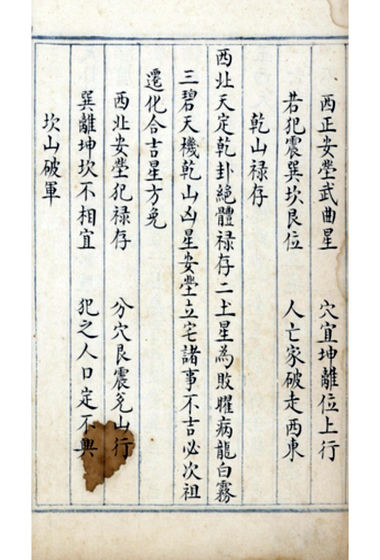 西正安塋武曲星　穴宜坤離位上行
若犯震巽坎艮位　人亡家破走西東
乾山禄存
西北天定乾卦絕體禄存二土星為敗曜病龍白霧
三碧天機乾山凶星安塋立宅諸事不吉必次祖
遷化合吉星方免
西北安塋犯禄存　分穴艮震兑山行
巽離坤坎不相宜　犯之人口定不興
坎山破軍